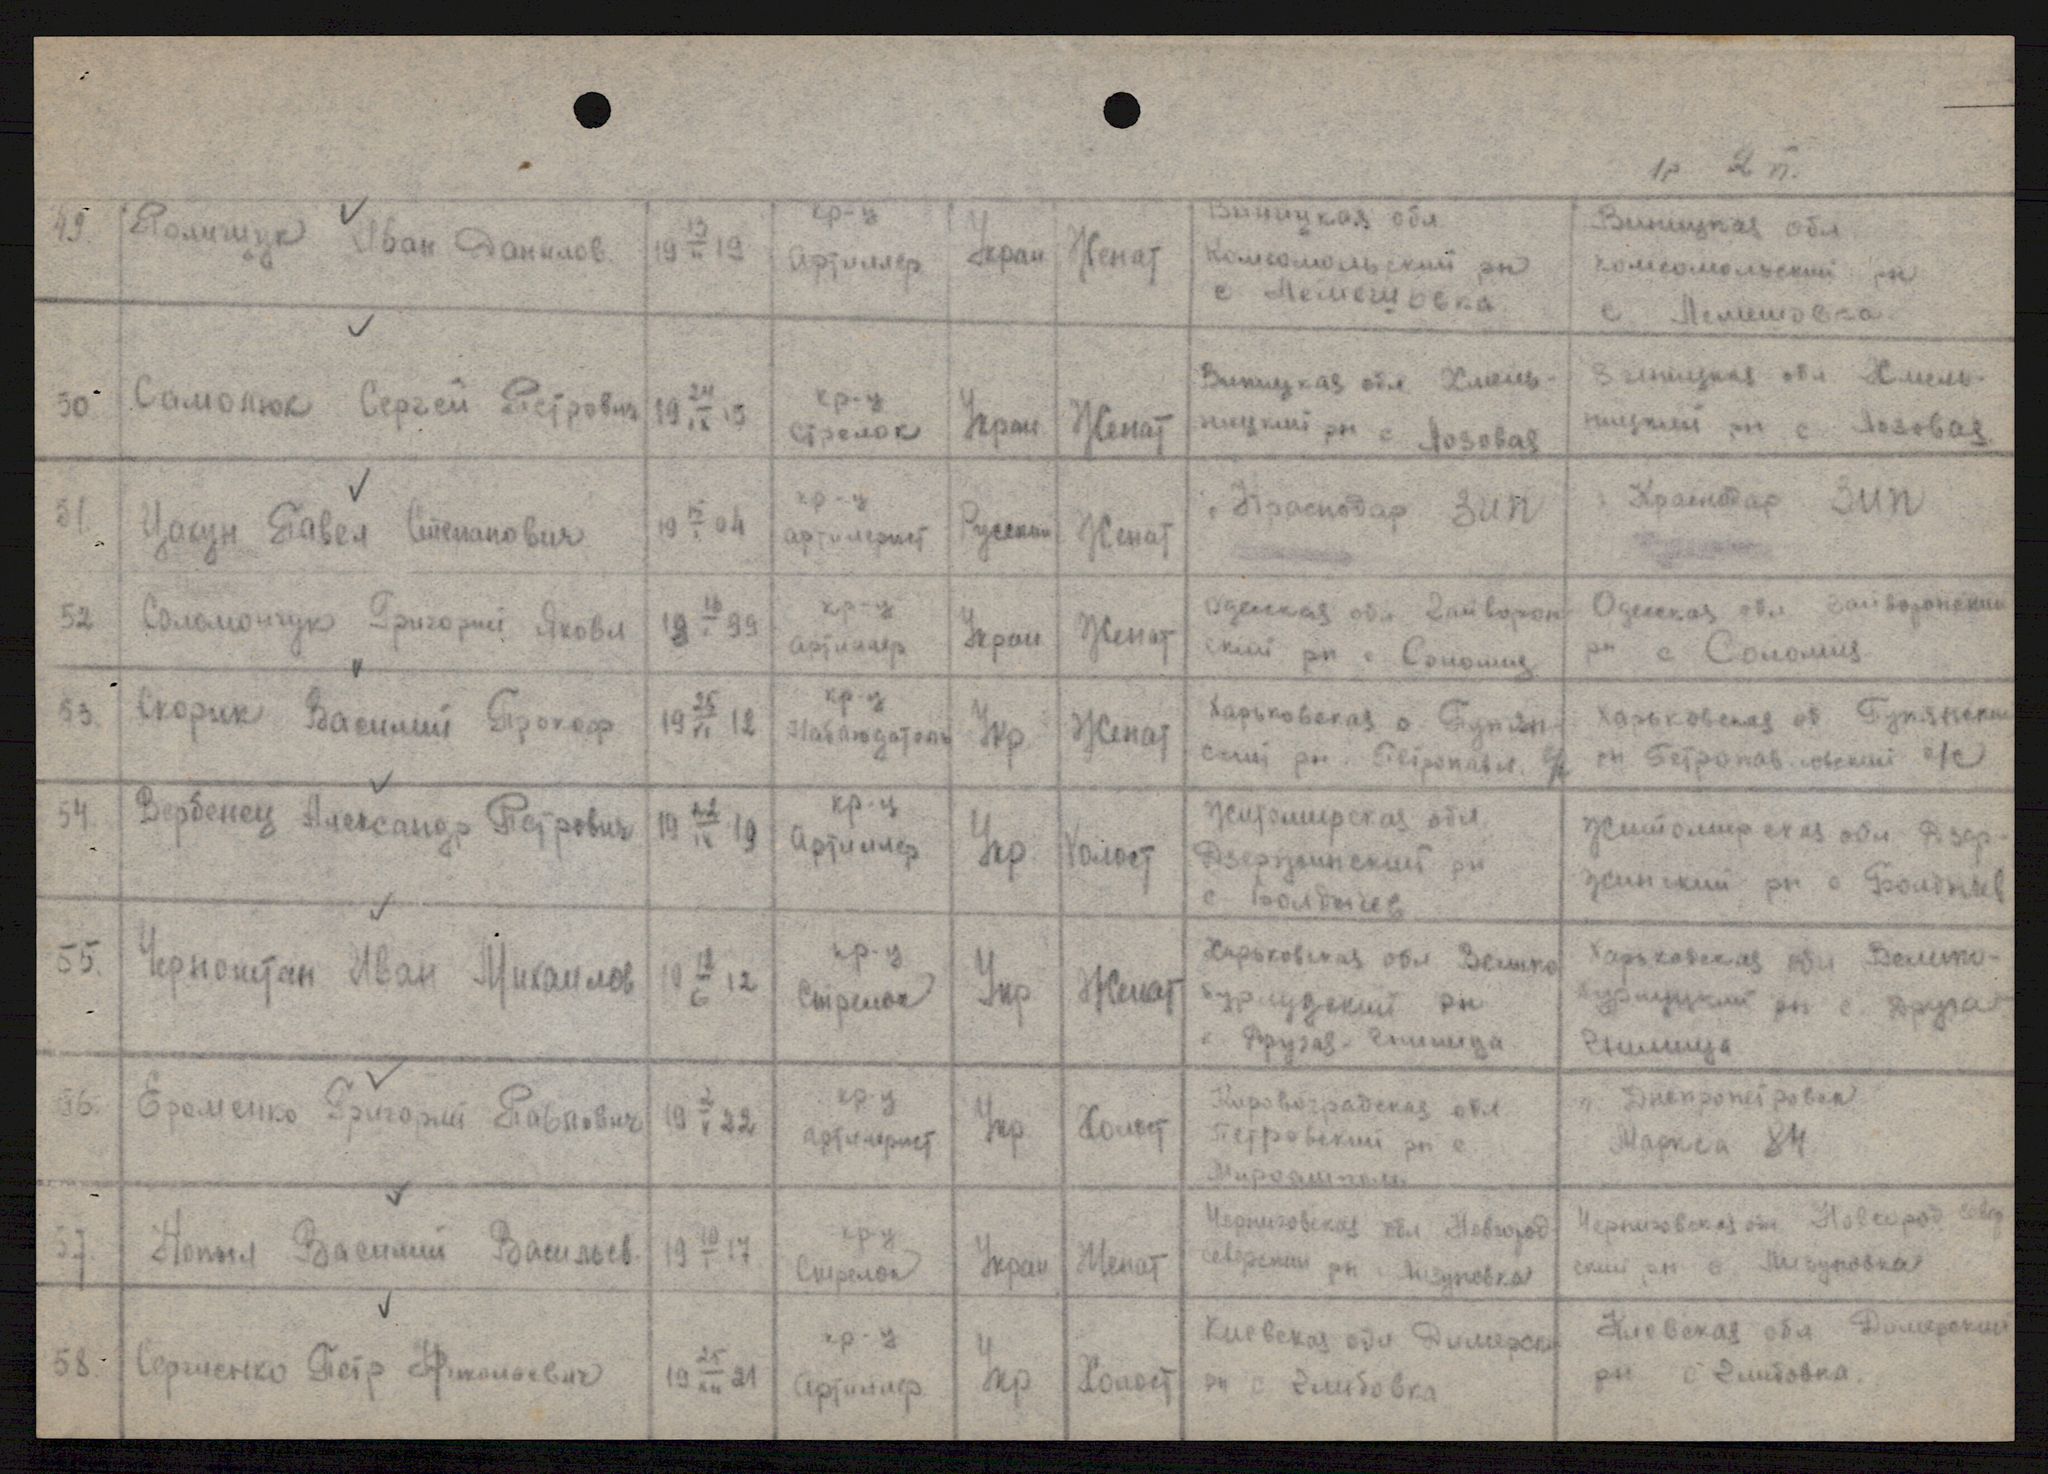 1р 2 п.
49. Полищук Иван Данилов. 19 13/II 19 кр-ц Артиллер Украи Женат
Виницкая обл
Комсомольский рн
с Лемешовка
Виницкая обл.
комсомольский рн
с Лемешовка
50 Самолюк Сергей Петрович 19 24/IX 15 кр-ц Стрелок Украи Женат
Виницкая обл Хмель-
ницкий рн с Лозовая
Виницкая обл Хмель-
ницкий рн с Лозовая
51. Цакун Павел Степанович 19 15/I 04 кр-ц артилерист Русский Женат
г. Краснодар ЗИП
г. Краснодар ЗИП
52 Соломончук Григорий Яковл 99 кр-ц Артиллер Украи Женат
Одесская обл Гайворон
ский рн с Соломия
Одесская обл Гайворонский
рн с Соломия
53. Скорик Василий Прокоф 19 12 кр-ц Наблюдатель Укр Женат
Харьковская о
ский рн Петропавл. с/с
Харьковская об
рн Петропавловский с/с
54. Вербенец Александр Петрович 19 19 кр-ц Артиллер Укр. Холост
Житомирская обл.
Дзержинский рн
с Болдычев
Житомирская обл Дзер-
жинский рн с Болдычев
55. Черноштан Иван Михаилов 19 12 кр-ц Стрелок Укр Женат
Харьковская обл Велико
бурлуцкий рн
с Другая-Гнилица
Харьковская обл Велико-
бурлуцкий рн с. Друга
Гнилица
56. Ероменко Григорий Павлович 19 2/V 22 кр-ц артилерист Укр Холост
Кировоградская обл
Петровский рн с.
г. Днепропетровск
Маркса 84
57. Копыл Василий Васильев. 19 10/I 17 кр-ц Стрелок Украи Женат
Черниговская обл Новгород
северский рн
Черниговская обл Новгород север
ский рн с
58. Сергиенко Петр Николаевич 19 25 21 кр-ц Артиллер Укр Холост
Киевская обл Димерск
рн с Глибовка
Киевская обл Димерский
рн с Глибовка.